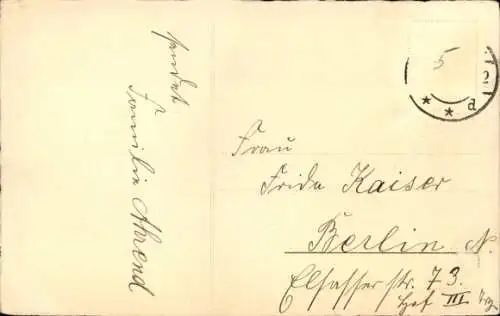 sendet
Familie Ahrend
5
* * a
Frau
Frida Kaiser
Berlin N.
Elsasser str. 73.
Hof III